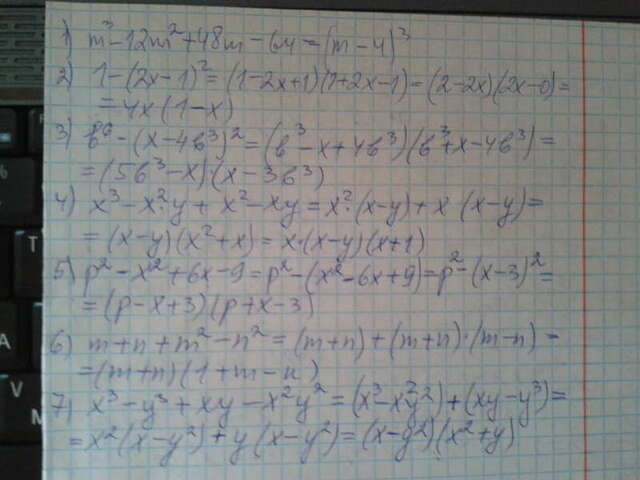 1) m³-12m²+48m-64=(m-4)³
2) 1-(2x-1)²=(1-2x+1)(1+2x-1)=(2-2x)(2x-0)=
=4x(1-x)
3) b⁶-(x-4b³)²=(b³-x+4b³)(b³+x-4b³)=
=(5b³-x)·(x-3b³)
4) x³-x²y+x²-xy=x²·(x-y)+x(x-y)=
=(x-y)(x²+x)=x·(x-y)(x+1)
5) p²-x²+6x-9=p²-(x²-6x+9)=p²-(x-3)²=
=(p-x+3)(p+x-3)
6) m+n+m²-n²=(m+n)+(m+n)·(m-n)=
=(m+n)(1+m-n)
7) x³-y³+xy-x²y²=(x³-x²y²)+(xy-y³)=
=x²(x-y²)+y(x-y²)=(x-y²)(x²+y)
T
A
V
M